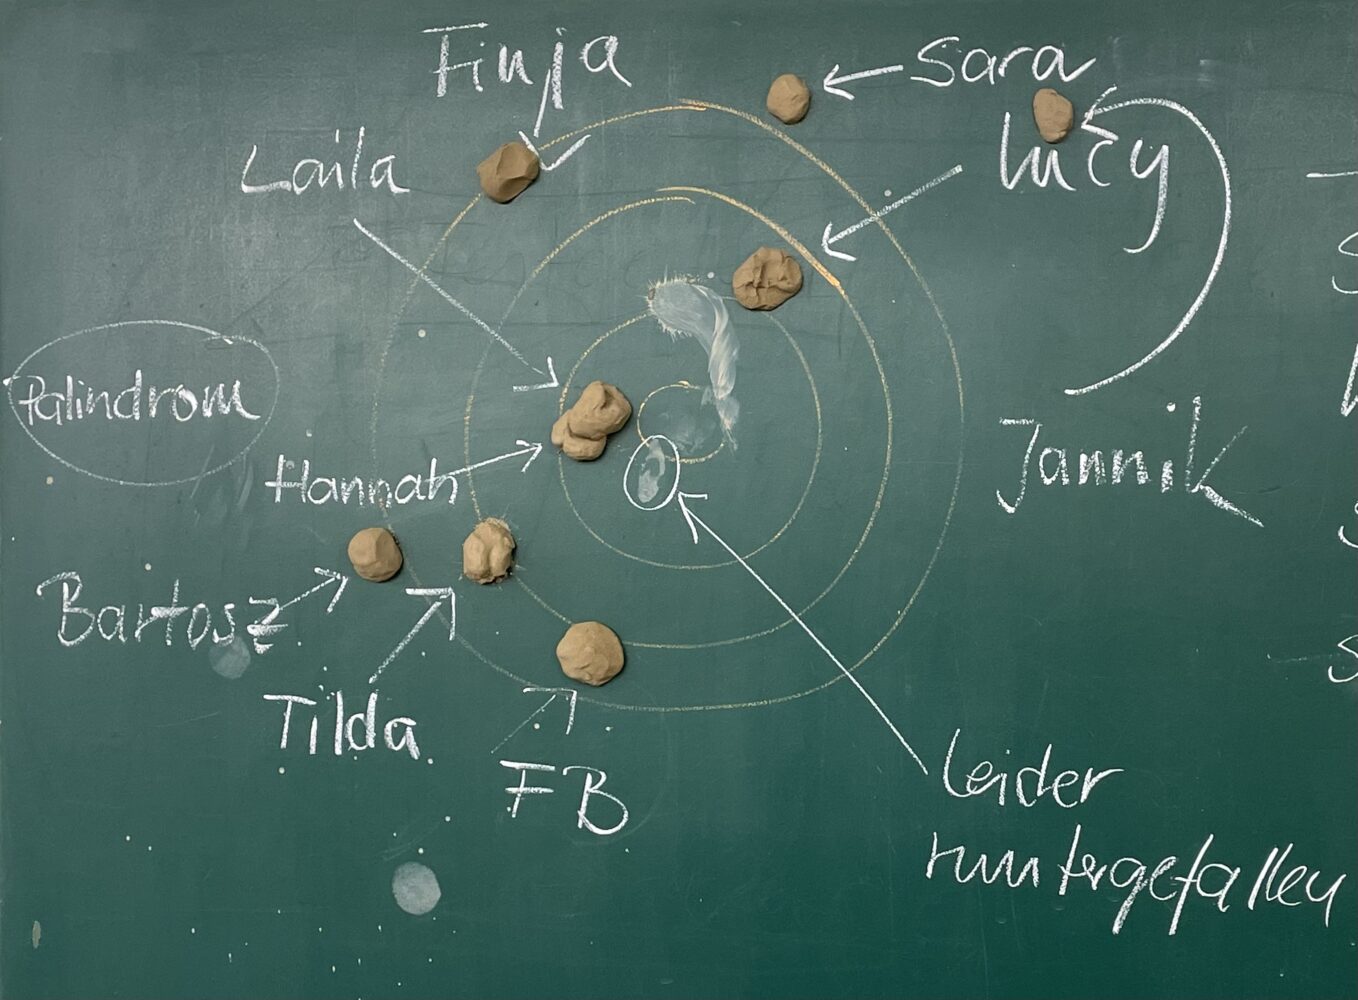 Finja
Sara
Laila
Lucy
Palindrom
Jannik
Hannah
Bartosz
Tilda
FB
leider
runtergefallen